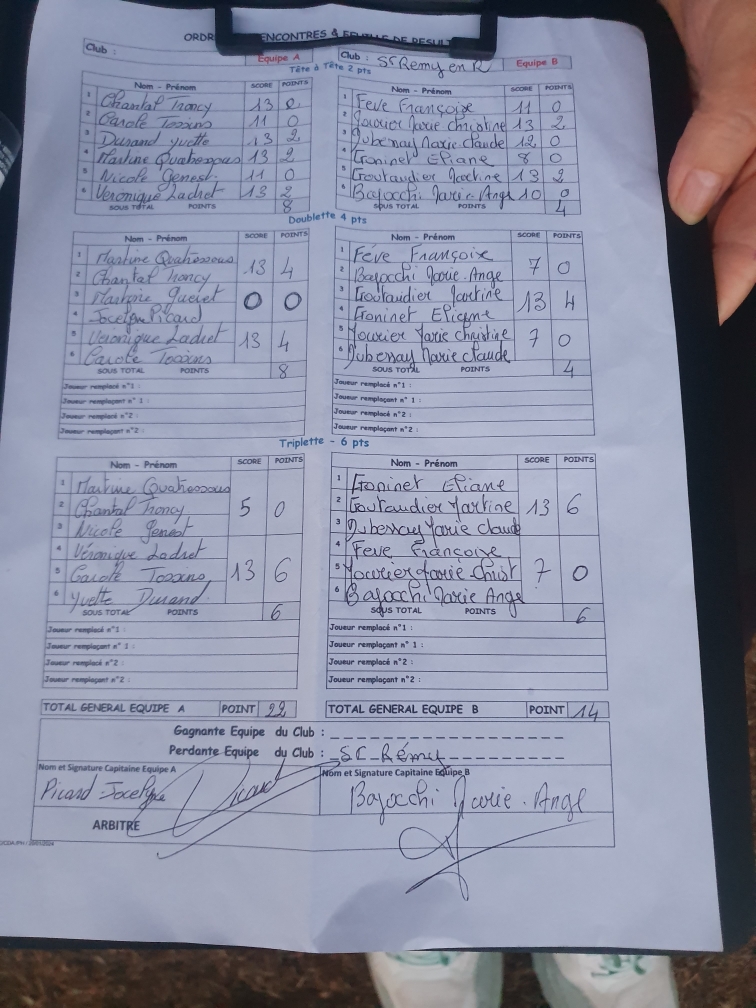 ORDRE RENCONTRES & FEUILLE DE RESULT
Club : Equipe A Club : St Remy en R Equipe B
Tête à Tête 2 pts
Nom - Prénom SCORE POINTS Nom - Prénom SCORE POINTS
1 Chantal Troncy 13 2 1 Feve Françoise 11 0
2 Carole Tossins 11 0 2 Jouvier Marie Christine 13 2
3 Durand Yvette 13 2 3 Dubessay Marie Claude 12 0
4 Martine Quatressous 13 2 4 Goninet Eliane 8 0
5 Nicole Genest 11 0 5 Goutaudier Martine 13 2
6 Veronique Ladret 13 2 6 Bajocchi Marie-Ange 10 0
SOUS TOTAL POINTS 8 SOUS TOTAL POINTS 4
Doublette 4 pts
Nom - Prénom SCORE POINTS Nom - Prénom SCORE POINTS
1 Martine Quatressous 13 4 1 Féve Françoise 7 0
2 Chantal Troncy 2 Bajocchi Marie-Ange
3 Martine Queret 0 0 3 Goutaudier Martine 13 4
4 Jocelyne Picard 4 Goninet Eliane
5 Veronique Ladret 13 4 5 Jouvier Marie Christine 7 0
6 Carole Tossins 6 Dubessay Marie Claude
SOUS TOTAL POINTS 8 SOUS TOTAL POINTS 4
Joueur remplacé n°1 : Joueur remplacé n°1 :
Joueur remplaçant n° 1 : Joueur remplaçant n° 1 :
Joueur remplacé n°2 : Joueur remplacé n°2 :
Joueur remplaçant n°2 : Joueur remplaçant n°2 :
Triplette - 6 pts
Nom - Prénom SCORE POINTS Nom - Prénom SCORE POINTS
1 Martine Quatressous 5 0 1 Goninet Eliane 13 6
2 Chantal Troncy 2 Goutaudier Martine
3 Nicole Genest 3 Dubessay Marie Claude
4 Véronique Ladret 13 6 4 Feve Françoise 7 0
5 Carole Tossins 5 Jouvier Marie Christ
6 Yvette Durand 6 Bajocchi Marie Ange
SOUS TOTAL POINTS 6 SOUS TOTAL POINTS 6
Joueur remplacé n°1 : Joueur remplacé n°1 :
Joueur remplaçant n° 1 : Joueur remplaçant n° 1 :
Joueur remplacé n°2 : Joueur remplacé n°2 :
Joueur remplaçant n°2 : Joueur remplaçant n°2 :
TOTAL GENERAL EQUIPE A POINT 22 TOTAL GENERAL EQUIPE B POINT 14
Gagnante Equipe du Club :
Perdante Equipe du Club : St Rémy
Nom et Signature Capitaine Equipe A Nom et Signature Capitaine Equipe B
Picard Jocelyne Picard Bajocchi Marie-Ange
ARBITRE